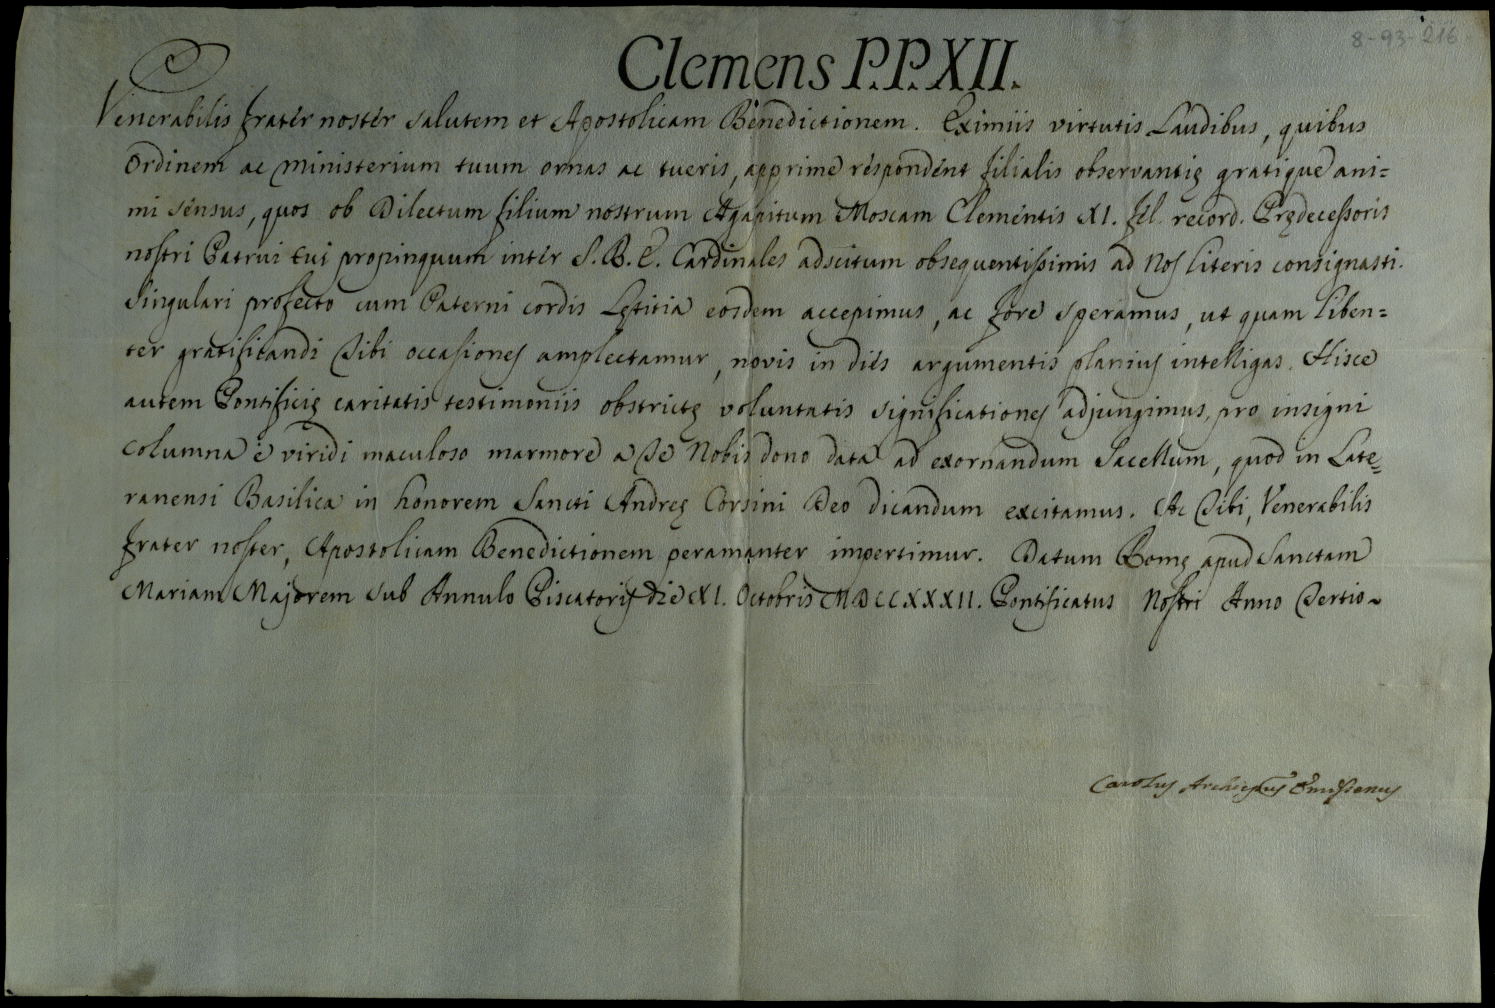 8-93-216
Clemens P.P.XII.
Venerabilis frater noster salutem et Apostolicam Benedictionem. Eximiis virtutis Laudibus, quibus
Ordinem ac Ministerium tuum ornas ac tueris, apprime respondent filialis observantię gratique ani=
mi sensus, quos ob Dilectum filium nostrum Agapitum Moscam Clementis XI. fel. record. Prędecessoris
nostri Patrui tui propinquum inter S.R.E. Cardinales adscitum obsequentissimis ad Nos literis consignasti.
Singulari profecto cum Paterni cordis Lętitia eosdem accepimus, ac fore speramus, ut quam liben=
ter gratificandi Tibi occasiones amplectamur, novis in dies argumentis planius intelligas. Hisce
autem Pontificię caritatis testimoniis obstrictę voluntatis significationes adjungimus, pro insigni
columna è viridi maculoso marmore a Te Nobis dono data ad exornandum Sacellum, quod in Late=
ranensi Basilica in honorem Sancti Andreę Corsini Deo dicandum excitamus. Ac Tibi, Venerabilis
frater noster, Apostolicam Benedictionem peramanter impertimur. Datum Romę apud Sanctam
Mariam Majorem sub Annulo Piscatoris die XI. Octobris MDCCXXXII. Pontificatus Nostri Anno Tertio~
Carolus Archiepus Emissenus